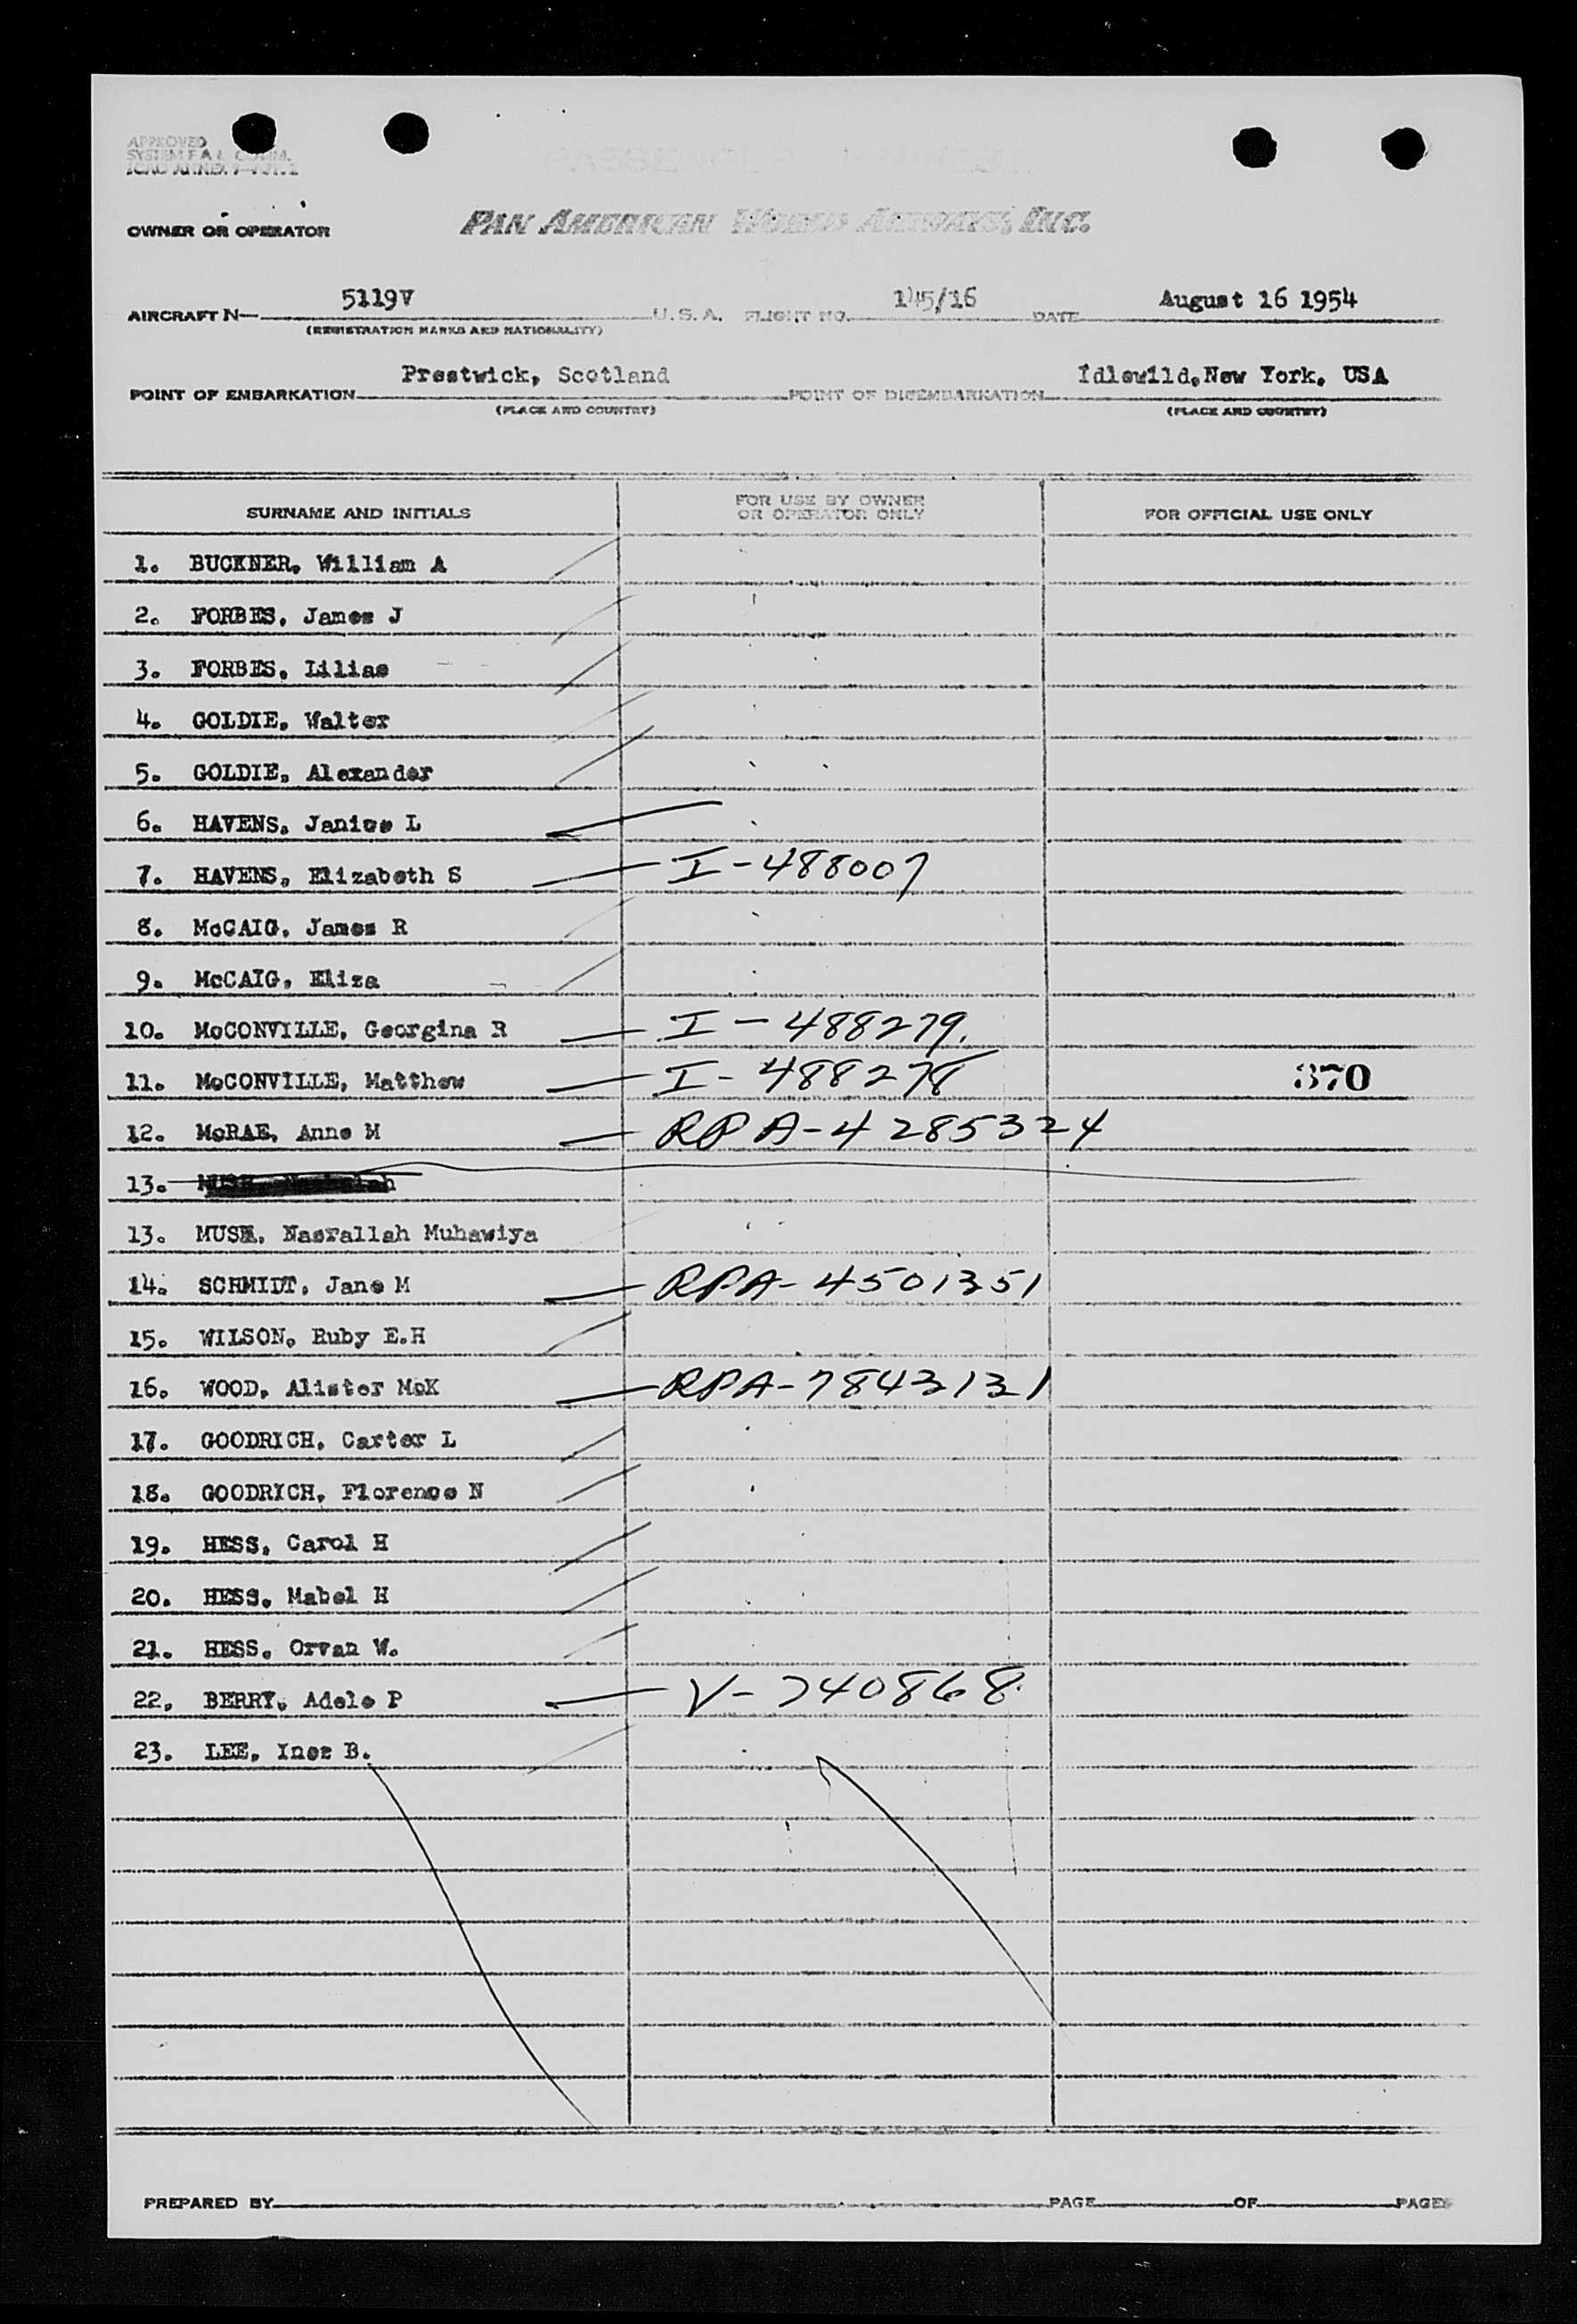 APPROVED
SYSTEM F A L COMM.
ICAO ANNEX
OWNER OR OPERATOR PAN AMERICAN WORLD AIRWAYS, INC.
AIRCRAFT N— 5119V U. S. A. FLIGHT NO. 145/16 DATE August 16 1954
(REGISTRATION MARKS AND NATIONALITY)
POINT OF EMBARKATION Prestwick, Scotland POINT OF DISEMBARKATION Idlewild, New York, USA
(PLACE AND COUNTRY) (PLACE AND COUNTRY)
SURNAME AND INITIALS FOR USE BY OWNER OR OPERATOR ONLY FOR OFFICIAL USE ONLY
1. BUCKNER, William A
2. FORBES, James J
3. FORBES, Lilias
4. GOLDIE, Walter
5. GOLDIE, Alexander
6. HAVENS, Janice L
7. HAVENS, Elizabeth S I-488007
8. McCAIG, James R
9. McCAIG, Eliza
10. McCONVILLE, Georgina R I-488279.
11. McCONVILLE, Matthew I-488278 370
12. McRAE, Anne M RPA-4285324
13.
13. MUSR, Nasrallah Muhawiya
14. SCHMIDT, Jane M RPA-4501351
15. WILSON, Ruby E.H
16. WOOD, Alister McK RPA-7843131
17. GOODRICH, Carter L
18. GOODRICH, Florence N
19. HESS, Carol H
20. HESS, Mabel H
21. HESS, Orvan W.
22. BERRY, Adele P V-740868
23. LEE, Inez B.
PREPARED BY PAGE OF PAGES